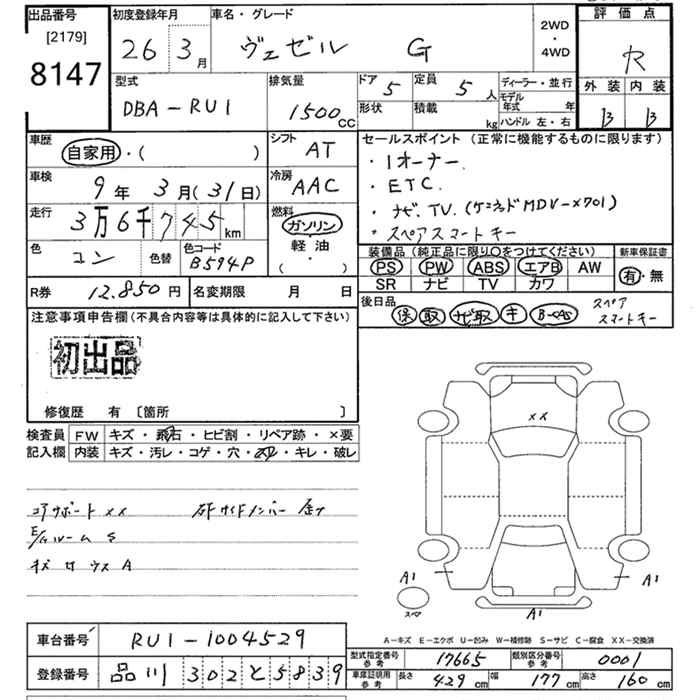 出品番号 初度登録年月 車名・グレード 評価点
[2179]
8147
26 3月 ヴェゼル G
2WD・4WD
R
型式 排気量 ドア 5 定員 5人 ディーラー・並行
モデル年式 年
外装 内装
DBA-RU1 1500cc 形状 積載 kg ハンドル 左・右
B B
車歴 シフト セールスポイント (正常に機能するものに限ります)
自家用・( ) AT
・1オーナー.
車検 冷房
9年 3月(31日) AAC
・ETC.
走行 燃料
3万6千745km ガソリン
軽油
( ・ )
・ナビ.TV.(ケンウッドMDV-X701)
・スペアスマートキー
色 コン 色替 色コード B594P
装備品 (純正品に限り〇をつけてください) 新車保証書
PS PW ABS エアB AW 有・無
SR ナビ TV カワ
R券 12.850円 名変期限 月 日
後日品 保 取 ナビ取 キ B-CAS スペアスマートキー
注意事項申告欄(不具合内容等は具体的に記入して下さい)
初出品
修復歴 有 〔箇所 〕
検査員記入欄 FW キズ・飛石・ヒビ割・リペア跡・×要
内装 キズ・汚レ・コゲ・穴・スレ・キレ・破レ
コアサポートXX
E/Gルーム S
XX
A1 A1
スペア A1
A-キズ E-エクボ U-凹み W-補修跡 S-サビ C-腐食 XX-交換済
車台番号 RU1-1004529
型式指定番号参考 17665 類別区分番号参考 0001
登録番号 品川 302 と 5839
車庫証明用参考 長さ 429cm 幅 177cm 高さ 160cm